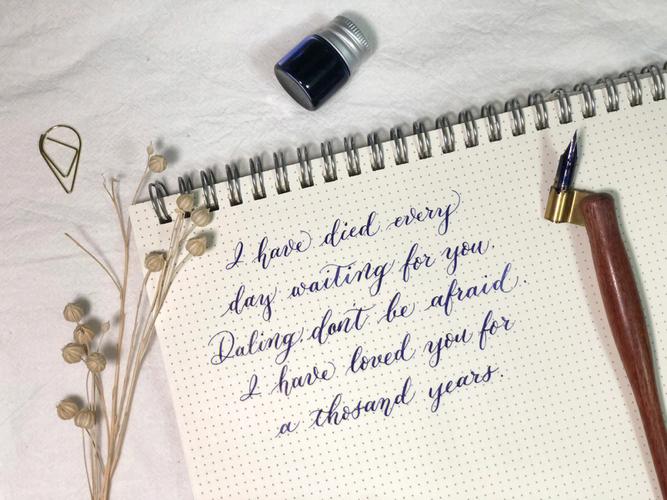 I have died every
day waiting for you.
Daling don't be afraid.
I have loved you for
a thosand years.